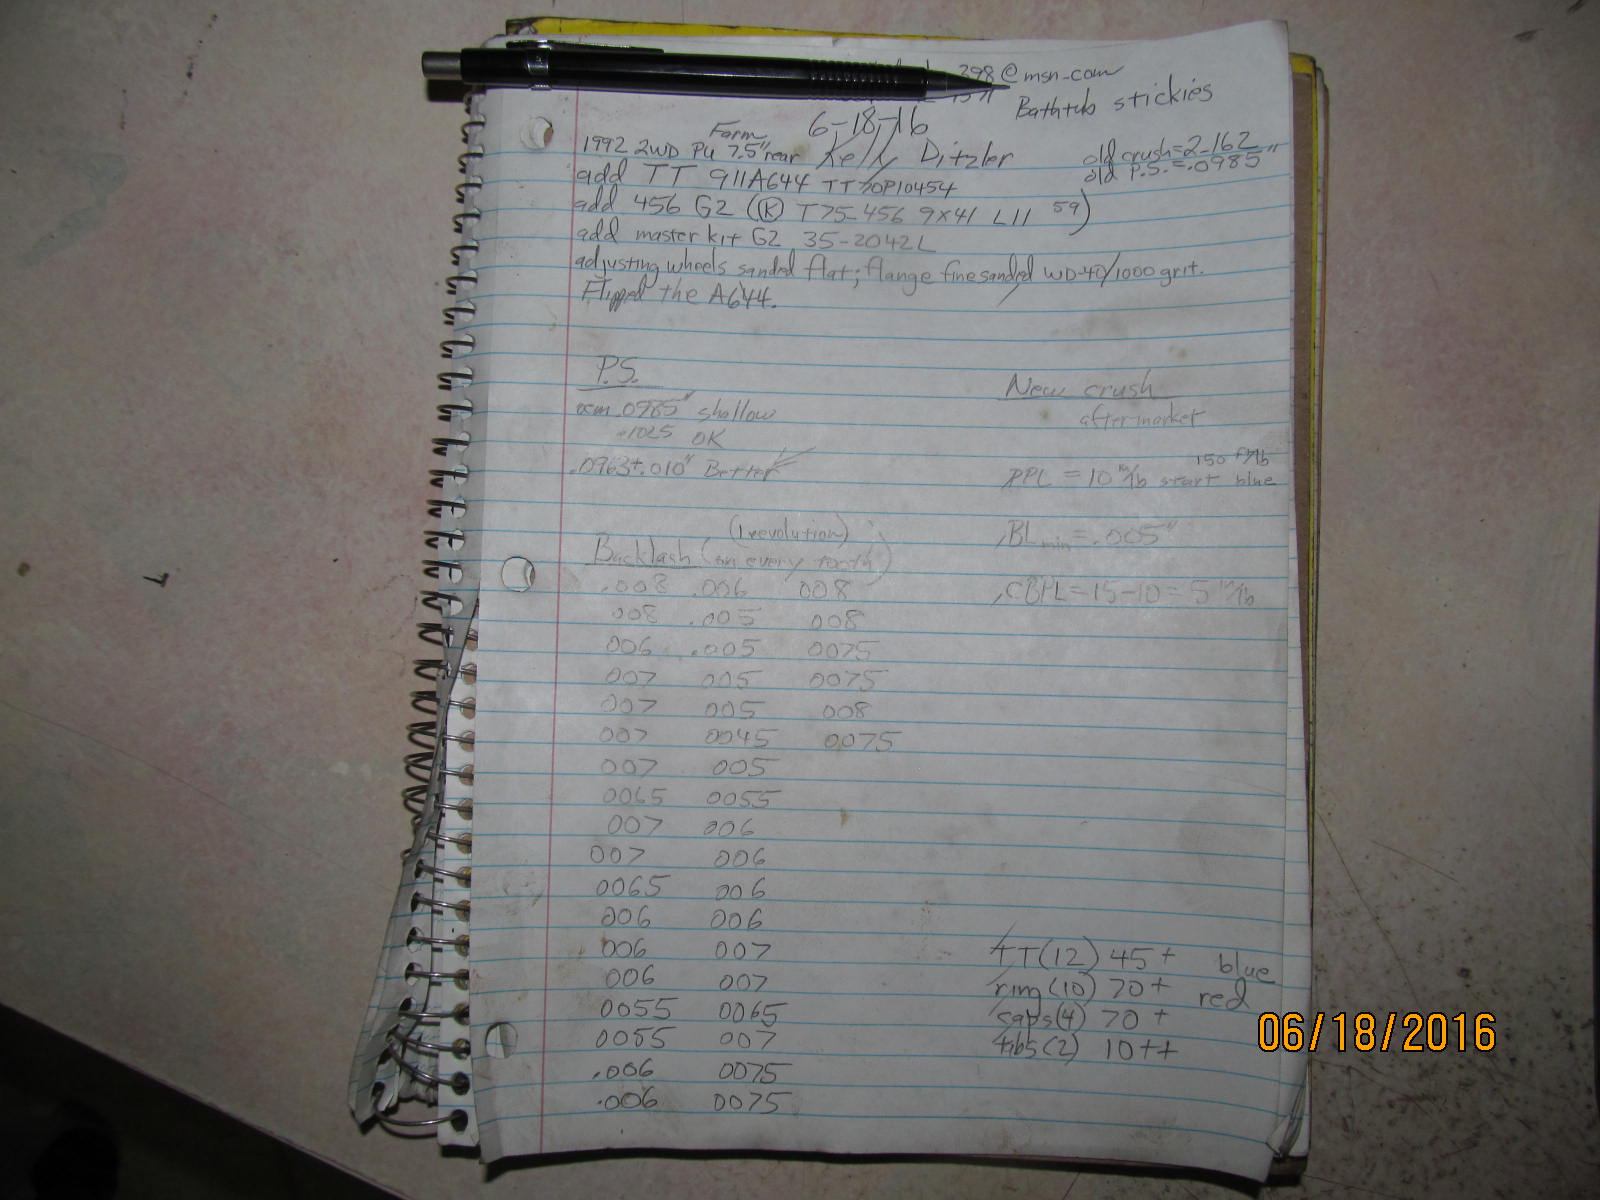 398@msn.com
Bathtub stickies
6-18-16
Farm
1992 2WD PU 7.5" rear Kelly Ditzler
old crush=2.162"
old P.S.=.0985"
add TT 911A644 TT70P10454
add 456 G2 (K) T75-456 9x41 L11 59)
add master kit G2 35-2042L
adjusting wheels sanded flat; flange fine sanded WD-40/1000 grit.
Flipped the A644.
P.S.
oem .0985" shallow
.1025 OK
.0963+.010" Better
New crush
aftermarket
150 ft/lb
PPL = 10 in/lb start blue
BL min = .005"
CBPL=15-10=5 in/lb
(1 revolution)
Backlash (on every tooth)
.008 .006 008
008 .005 008
006 .005 0075
007 005 0075
007 005 008
007 0045 0075
007 005
0065 0055
007 006
007 006
0065 006
006 006
006 007
006 007
0055 0065
0055 007
.006 0075
.006 0075
TT(12) 45+ blue
ring(10) 70+ red
caps(4) 70+
tabs(2) 10++
06/18/2016